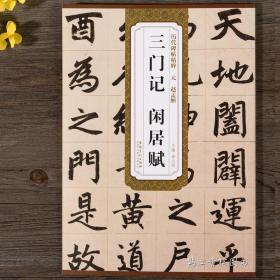 天地闔闢運乎
之戶
黃道
酉為之門是故
历代碑帖精粹 元 赵孟頫
三门记 闲居赋